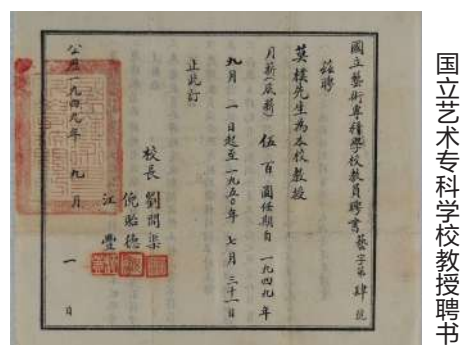 國立藝術專科學校教員聘書藝字第肆號
茲聘
莫樸先生為本校教授
月薪(底薪)伍百圓任期自一九四九年
九月一日起至一九五〇年七月三十一日
止此訂
校長劉開渠
倪貽德
江豐
公曆一九四九年九月一日
国立艺术专科学校教授聘书